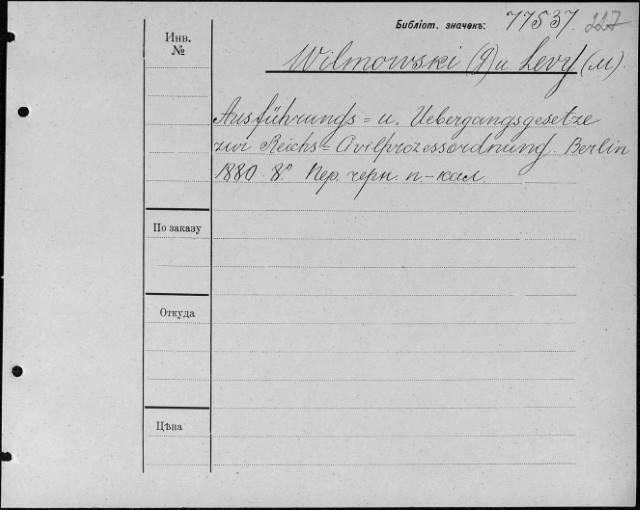 Библіот. значекъ: 77537. 227
Инв. №
Wilmowski (G) u Levy (M).
Ausführungs= u. Uebergangsgesetze
zur Reichs=Civilprozessordnung. Berlin
1880. 8° Пер. черн. п.-кал.
По заказу
Откуда
Цѣна